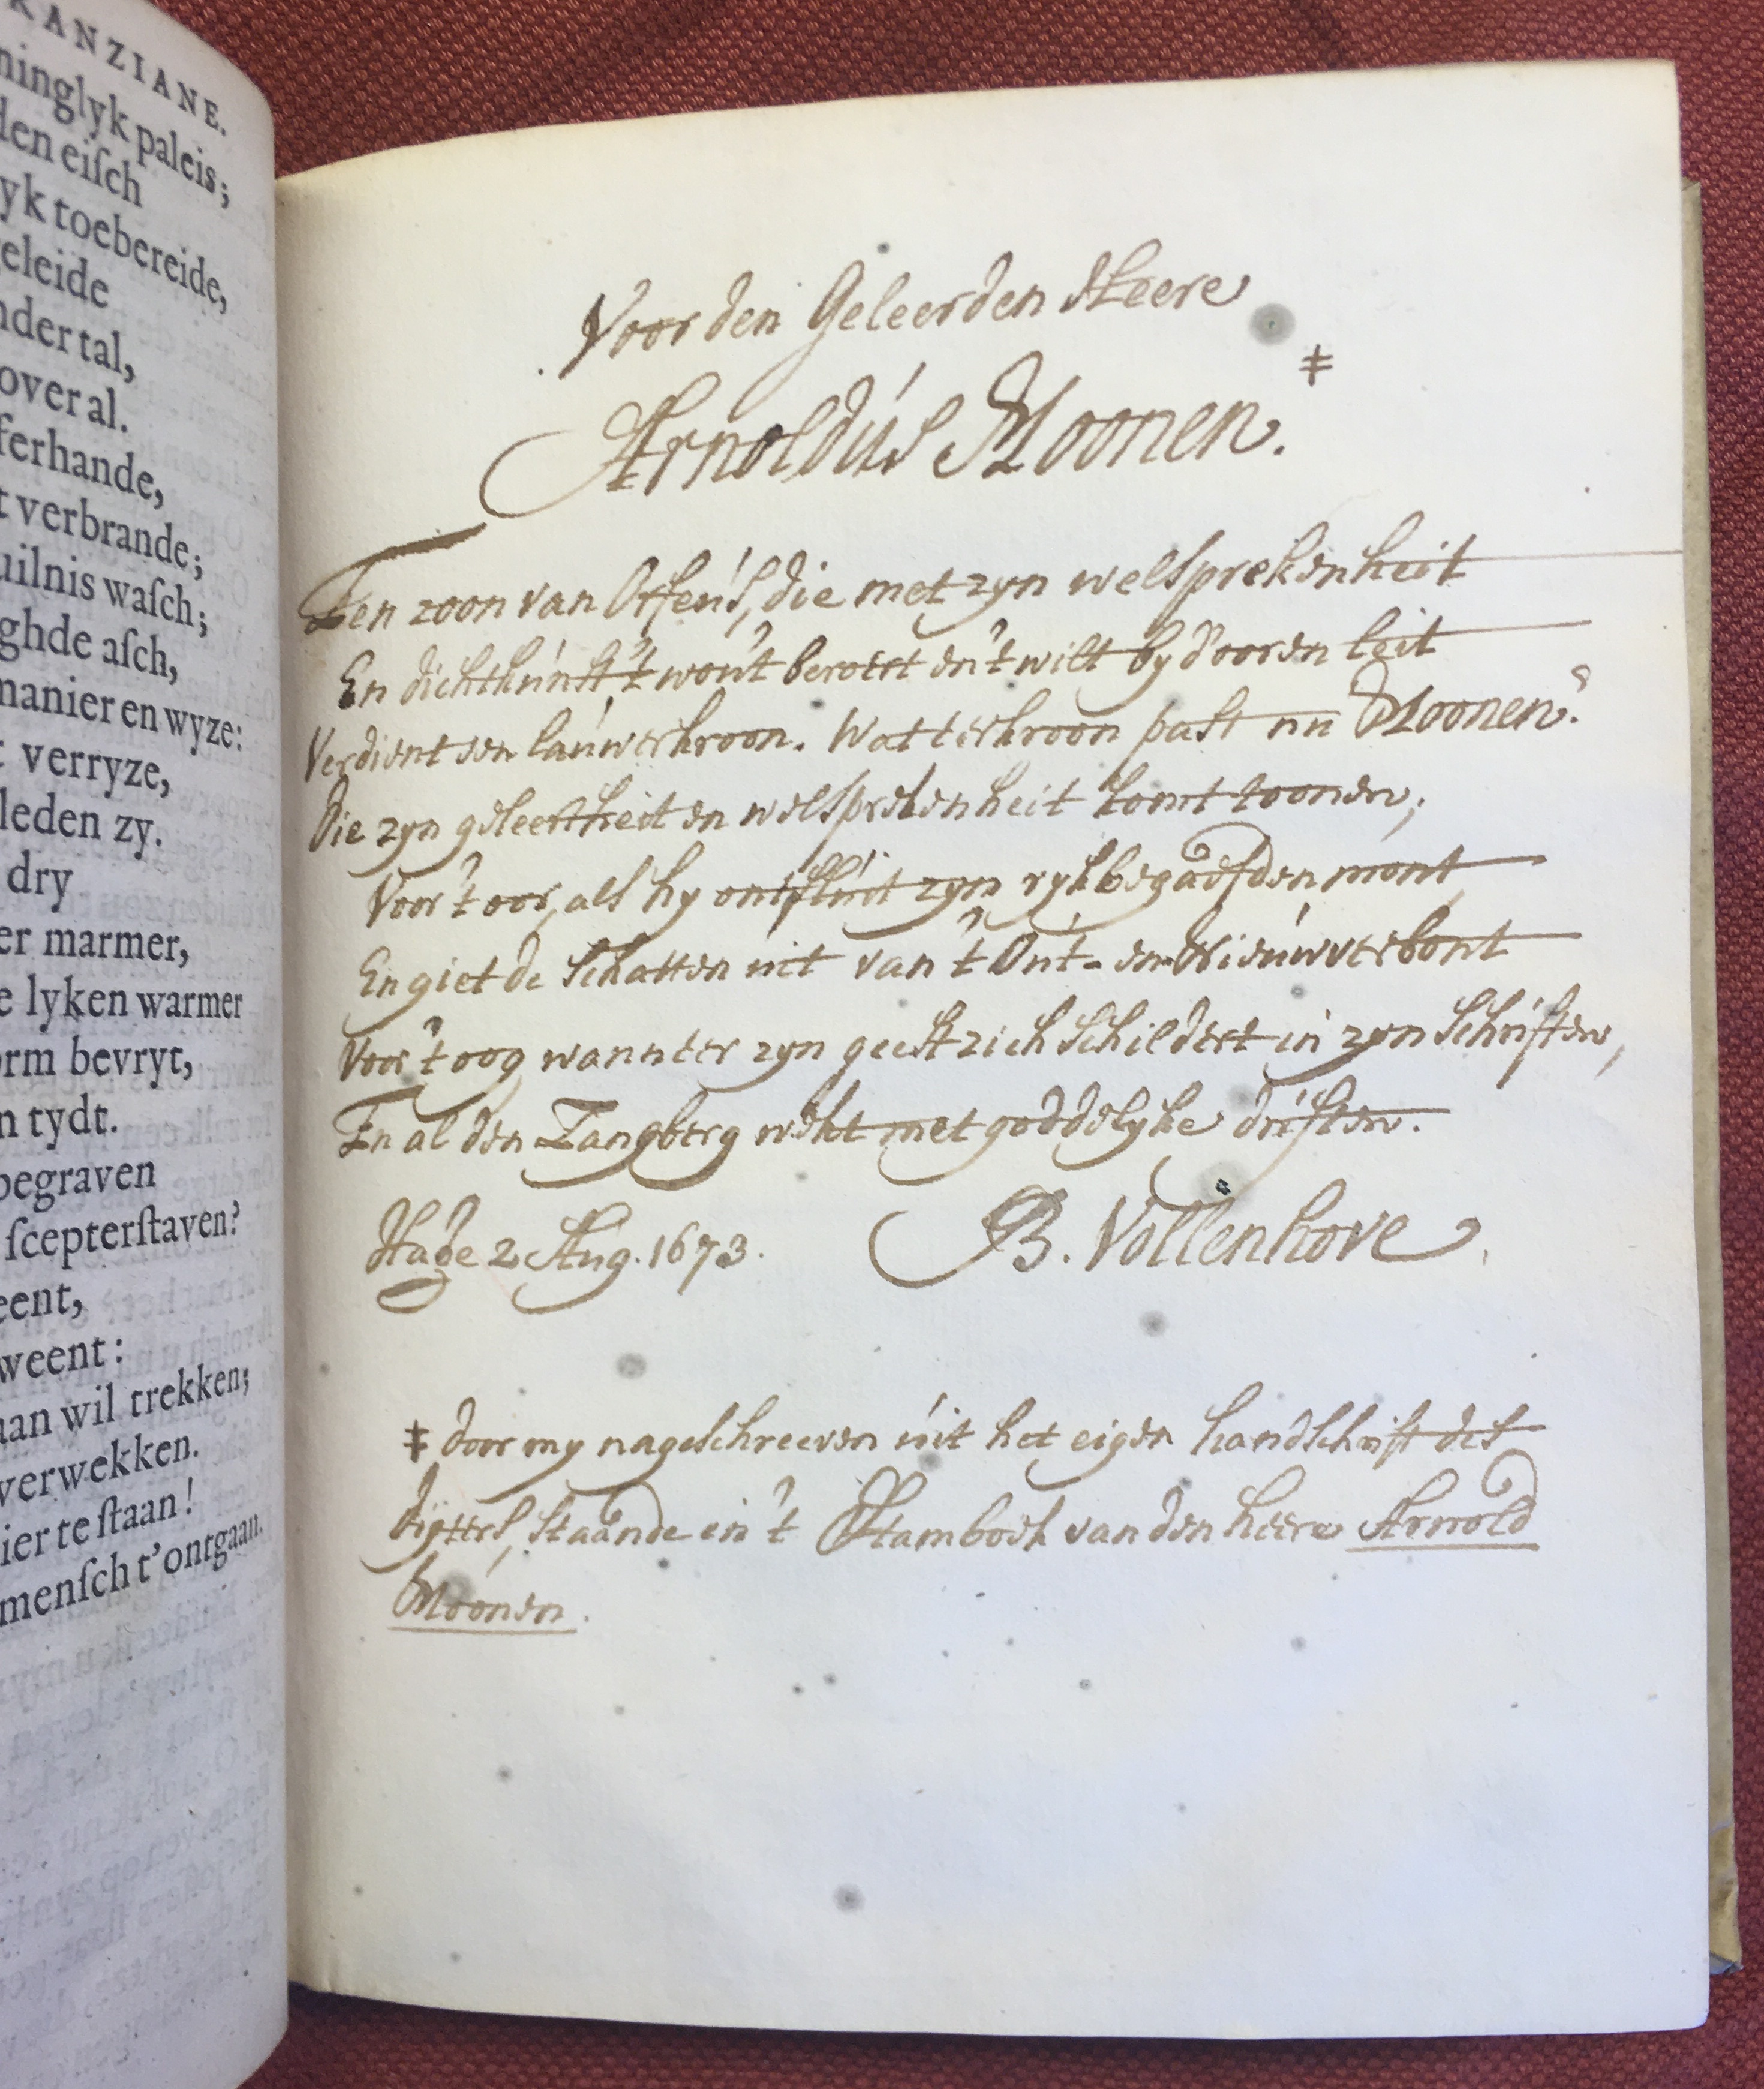 KANZIANE.
ninglyk paleis;
den eiſch
yk toebereide,
eleide
nder tal,
over al.
ferhande,
t verbrande;
uilnis waſch;
ghde aſch,
manier en wyze:
t verryze,
leden zy.
dry
er marmer,
e lyken warmer
orm bevryt,
n tydt.
begraven
ſcepterſtaven?
eent,
weent:
aan wil trekken;
verwekken.
ier te ſtaan!
menſch t'ontgaan.
Voor den Geleerden Heere
Arnoldus Moonen. ‡
Een zoon van Orfeus, die met zyn welsprekenheit
En dichtkunst 't wout beroert en 't wilt by d'ooren leit
Verdient een lauwerkroon. Wat eerkroon past nu Moonen?
Die zyn geleertheit en welsprekenheit komt toonen,
Voor 't oor, als hy ontsluit zyn rykbegaefden mont,
En giet de schatten uit van 't Out- en Nieuwverbont
Voor 't oog wanneer zyn geest zich schildert in zyn schriften,
En al den Zangberg wekt met goddelyke driften.
Hage 2 Aug. 1673. B. Vollenhove
‡ door my nageschreeven uit het eigen handschrift des
digters, staande in 't Stamboek van den heere Arnold
Moonen.